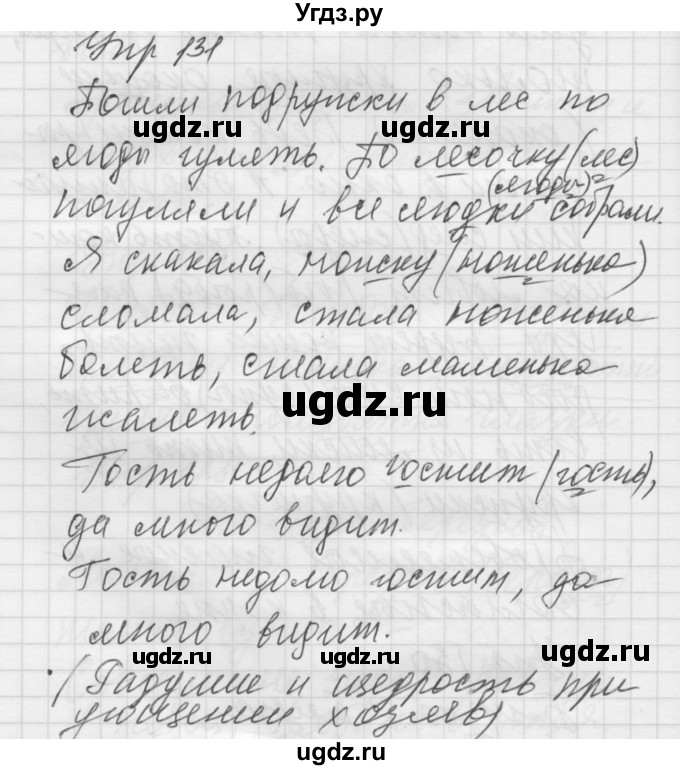 Угдз.ру
Упр 131
Пошли подружки в лес по
ugdz.ru ugdz.ru
ягоды гулять. По лесочку (лес)
(ягоды)
погуляли и все ягодки собрали.
ugdz.ru
Я скакала, ножку (ноженька)
сломала, стала ноженька
болеть, стала маменька
ugdz.ru
жалеть.
Гость недолго гостит (гость),
да много видит.
Гость недомо гостит, да
много видит.
ugdz.ru ugdz.ru
(Радушие и щедрость при
угощении хозяев)
ugdz.ru